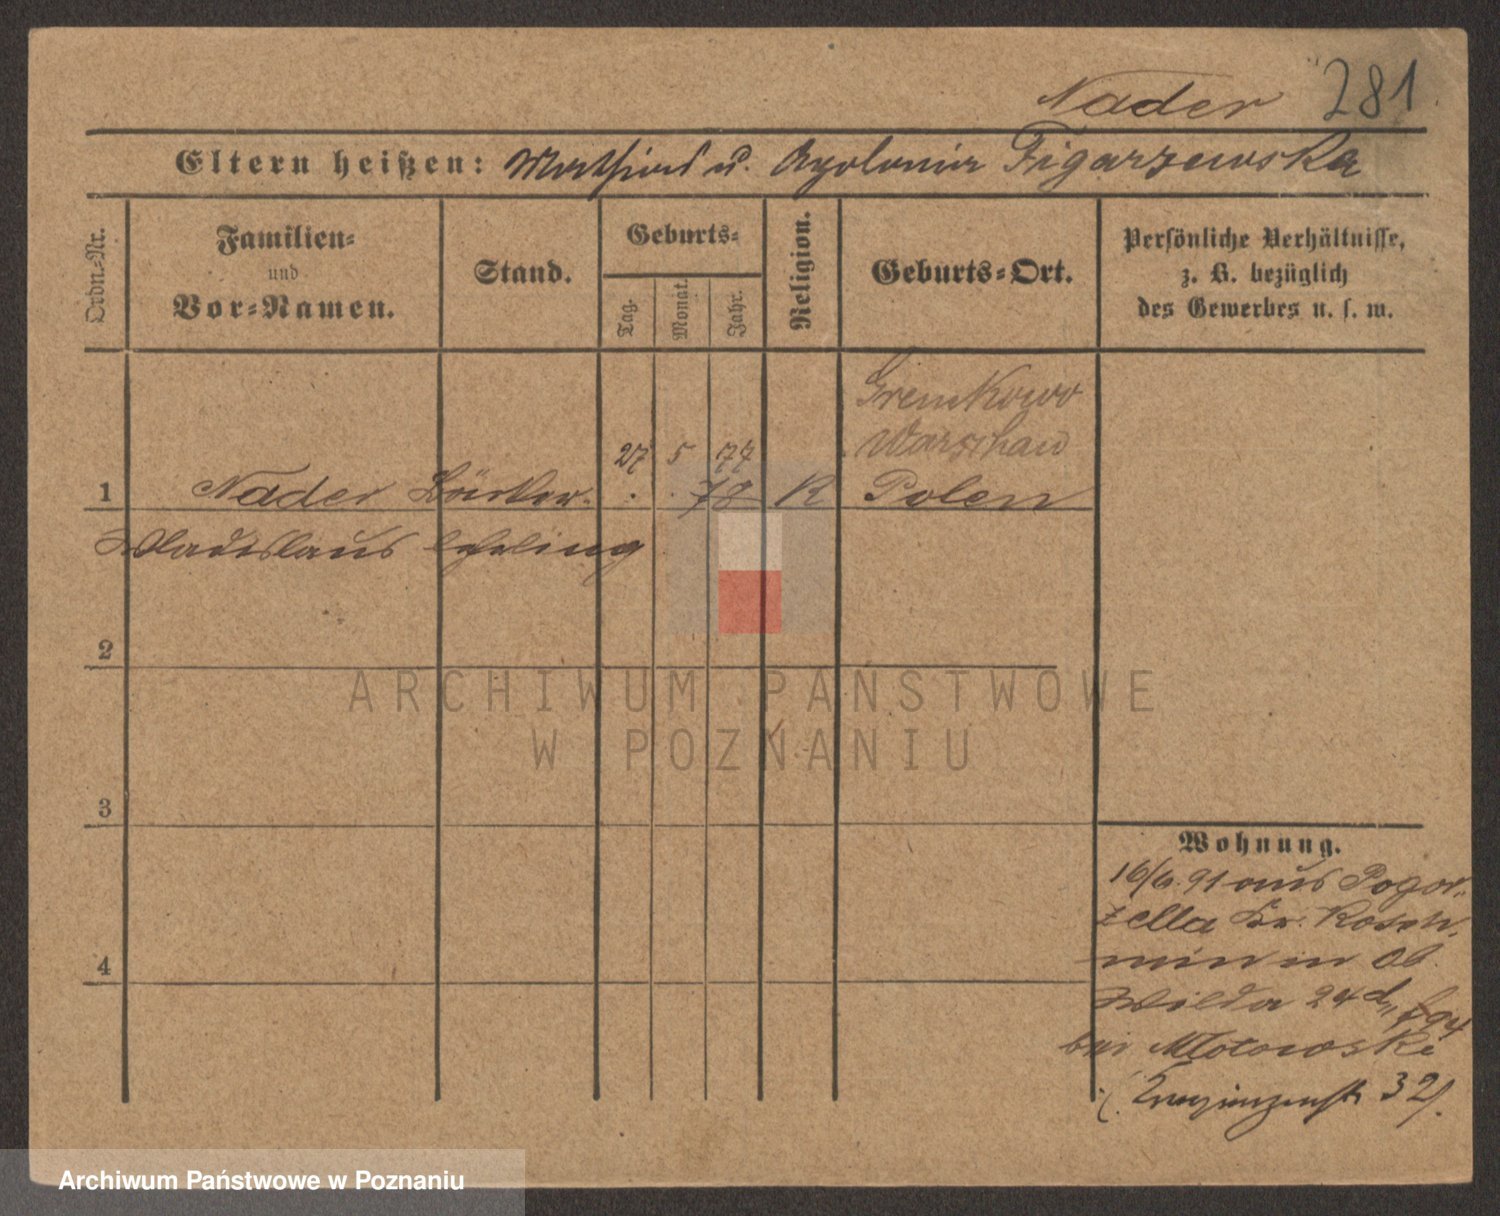 Nader 281
Eltern heißen: Mathias u. Apolonia Figarzewska
Ordn.-Nr.
Familien-
und
Vor-Namen.
Stand.
Geburts-
Tag.
Monat.
Jahr.
Religion.
Geburts-Ort.
Persönliche Verhältnisse,
z. B. bezüglich
des Gewerbes u. s. w.
Gremkowo
Warschau
27 5 77
1 Nader Bäcker- . . 78 K Polen
Wladislaus lehrling
2
ARCHIWUM PAŃSTWOWE
W POZNANIU
3
4
Wohnung.
16/6. 91 aus Pogor-
zella Kr. Kosch-
min in Ob.
Wilda 24
bei Mlotowski
32).
Archiwum Państwowe w Poznaniu